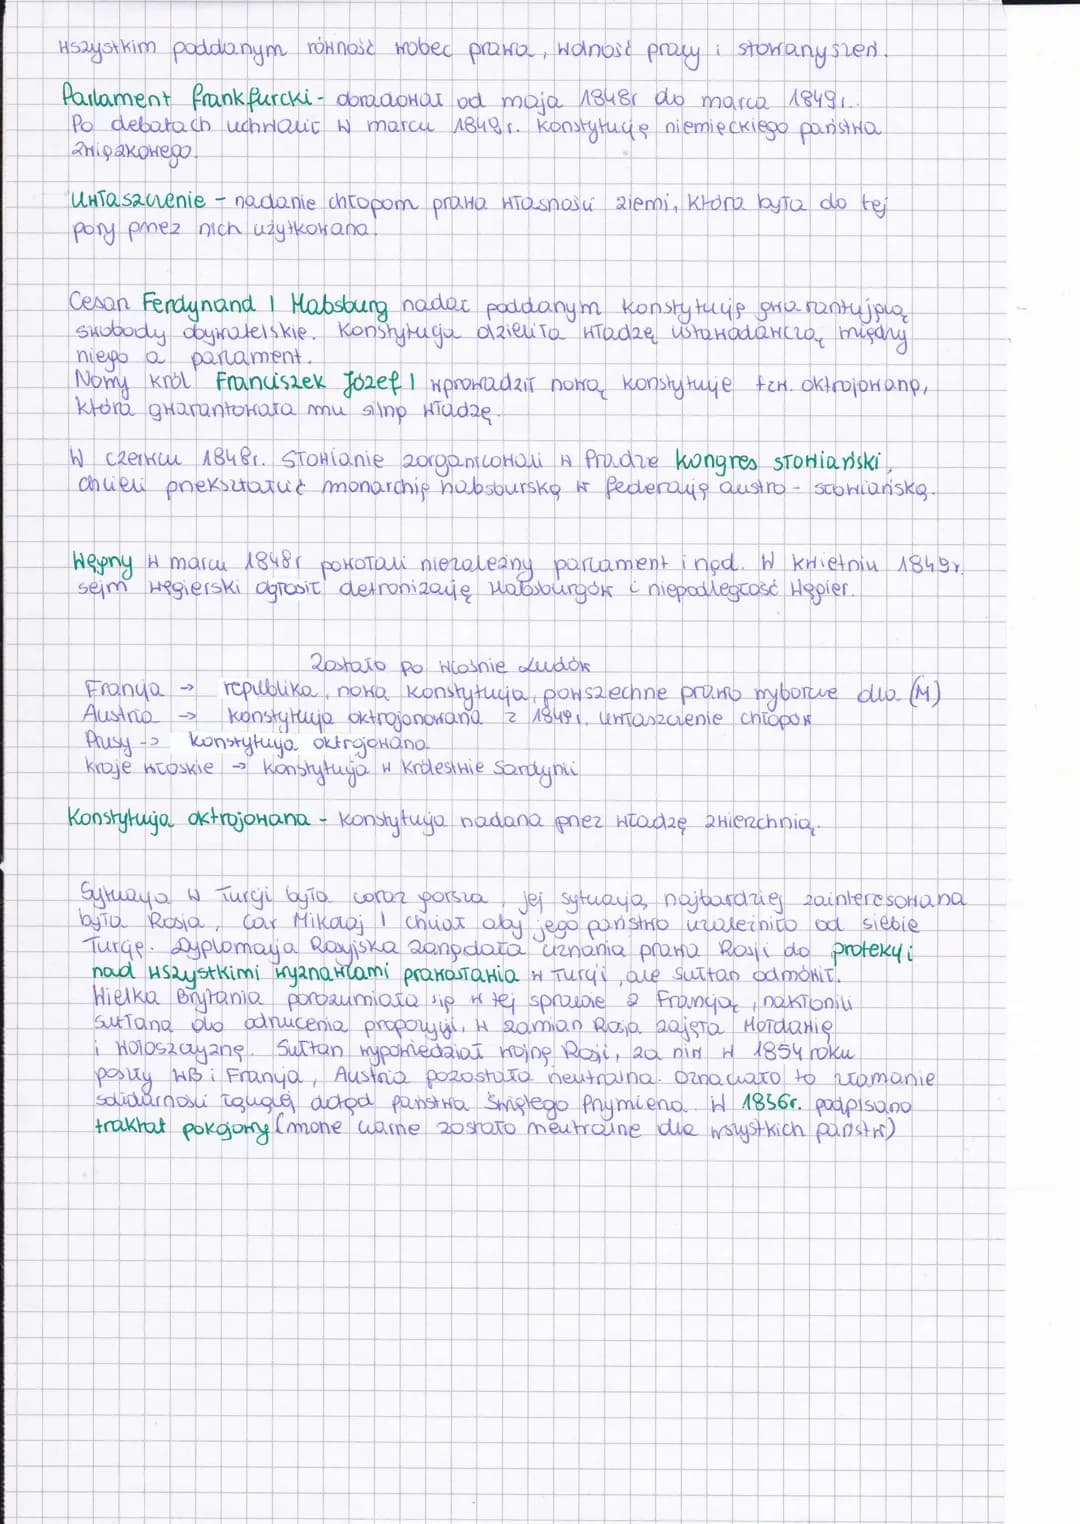 wszystkim poddanym równość wobec prawa, wolność pracy i stowarzyszeń.
Parlament frankfurcki - obradował od maja 1848r do marca 1849r.
Po debatach uchwalił w marcu 1849r. konstytucję niemieckiego państwa
związkowego.
Uwłaszczenie - nadanie chłopom prawa własności ziemi, która była do tej
pory przez nich użytkowana.
Cesarz Ferdynand I Habsburg nadał poddanym konstytucję gwarantującą
swobody obywatelskie. Konstytucja dzieliła władzę ustawodawczą między
niego a parlament.
Nowy król Franciszek Józef I wprowadził nową konstytucję tzw. oktrojowaną,
która gwarantowała mu silną władzę.
W czerwcu 1848r. Słowianie zorganizowali w Pradze kongres słowiański,
chcieli przekształcić monarchię habsburską w federację austro - słowiańską.
Węgrzy w marcu 1848r powołali niezależny parlament i rząd. W kwietniu 1849r.
sejm węgierski ogłosił detronizację Habsburgów i niepodległość Węgier.
Zostało po Wiośnie Ludów
Francja → republika, nowa konstytucja, powszechne prawo wyborcze dla (M)
Austria → konstytucja oktrojonowana z 1849r. uwłaszczenie chłopów
Prusy -> konstytucja oktrojowana
kraje włoskie → konstytucja w Królestwie Sardynii
Konstytucja oktrojowana - konstytucja nadana przez władzę zwierzchnią.
Sytuacja w Turcji była coraz gorsza, jej sytuacją najbardziej zainteresowana
była Rosja, Car Mikołaj I chciał aby jego państwo uzależniło od siebie
Turcję. Dyplomacja Rosyjska zażądała uznania prawa Rosji do protekcji
nad wszystkimi wyznawcami prawosławia w Turcji, ale sułtan odmówił.
Wielka Brytania porozumiała się w tej sprawie z Francją, nakłonili
sułtana do odrzucenia propozycji, w zamian Rosja zajęła Mołdawię
i Wołoszczyznę. Sułtan wypowiedział wojnę Rosji, za nim w 1854 roku
poszły WB i Francja, Austria pozostała neutralna. Oznaczało to złamanie
solidarności łączącej dotąd państwa Świętego Przymierza. W 1856r. podpisano
traktat pokojowy (morze czarne zostało neutralne dla wszystkich państw)